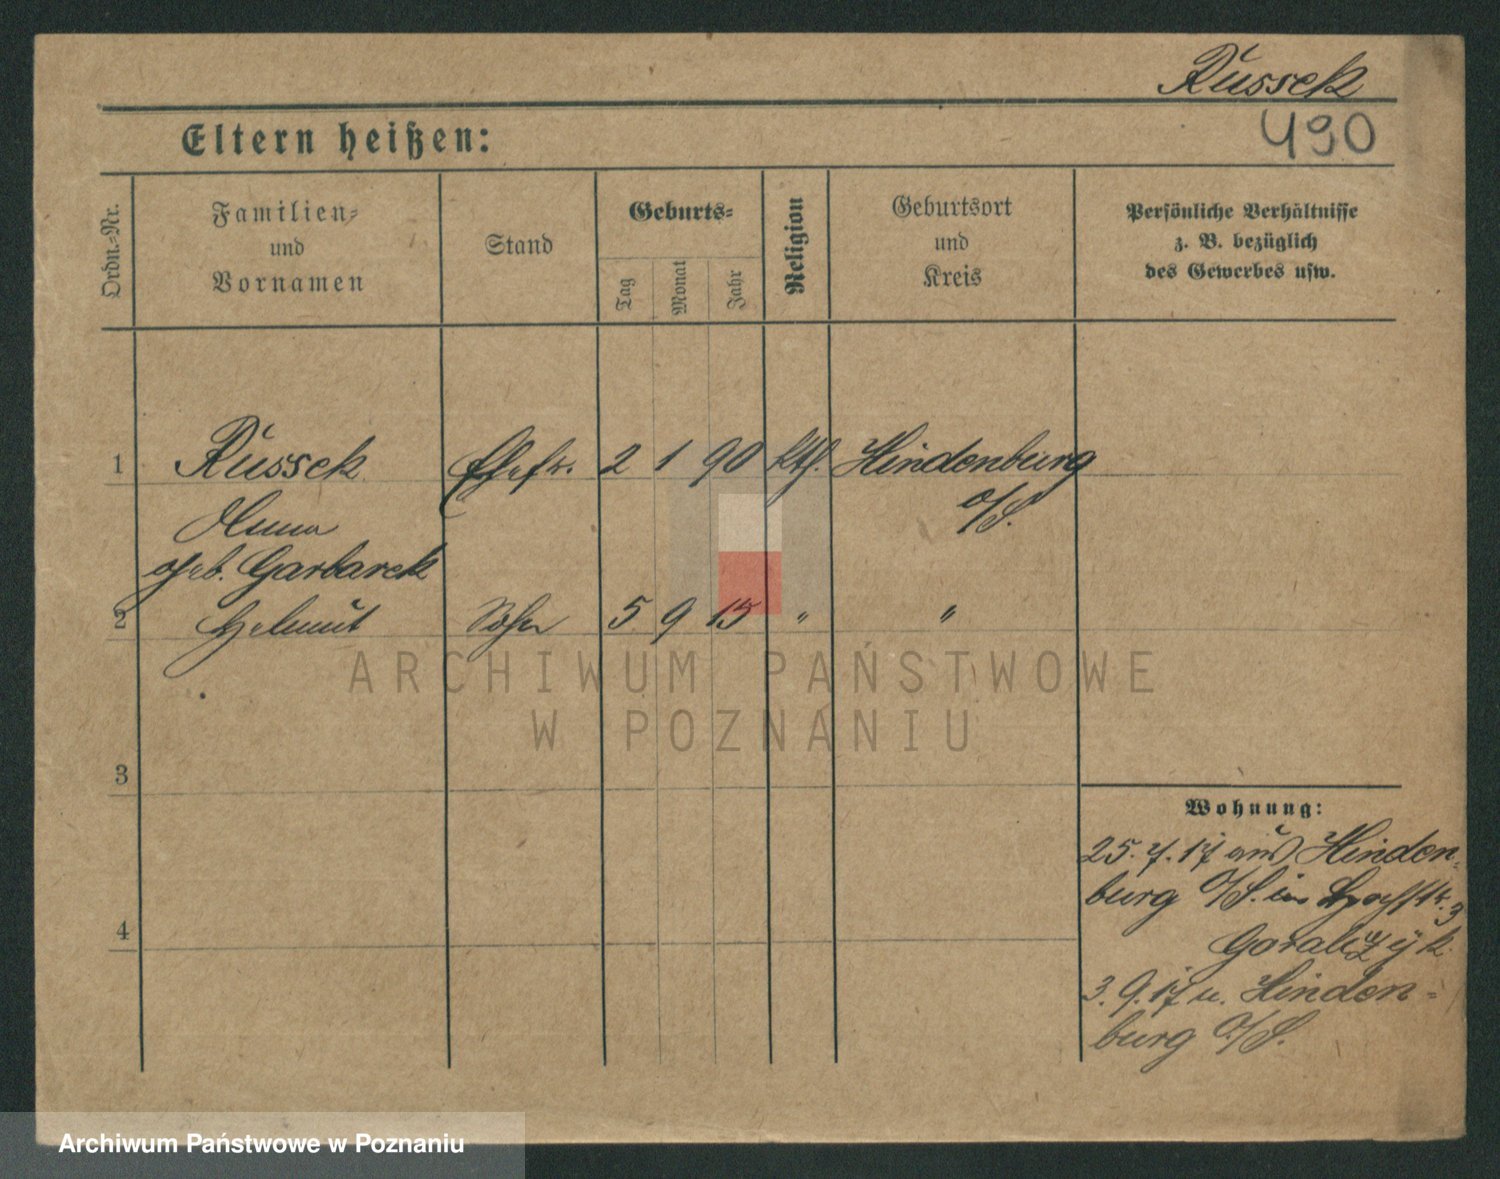 Russek
490
Eltern heißen:
Ordn.-Nr.
Familien-
und
Vornamen
Stand
Geburts-
Tag
Monat
Jahr
Religion
Geburtsort
und
Kreis
Persönliche Verhältnisse
z. B. bezüglich
des Gewerbes usw.
1 Russek Ehefr. 2 1 90 kth. Hindenburg
O/S.
geb. Garbarek
2 Helmut Sohn 5 9 15 " "
ARCHIWUM PAŃSTWOWE
W POZNANIU
3
4
Wohnung:
25.7.17 aus Hinden-
burg O/S. 3
Goralczyk.
3.9.17 n. Hinden-
burg O/S.
Archiwum Państwowe w Poznaniu